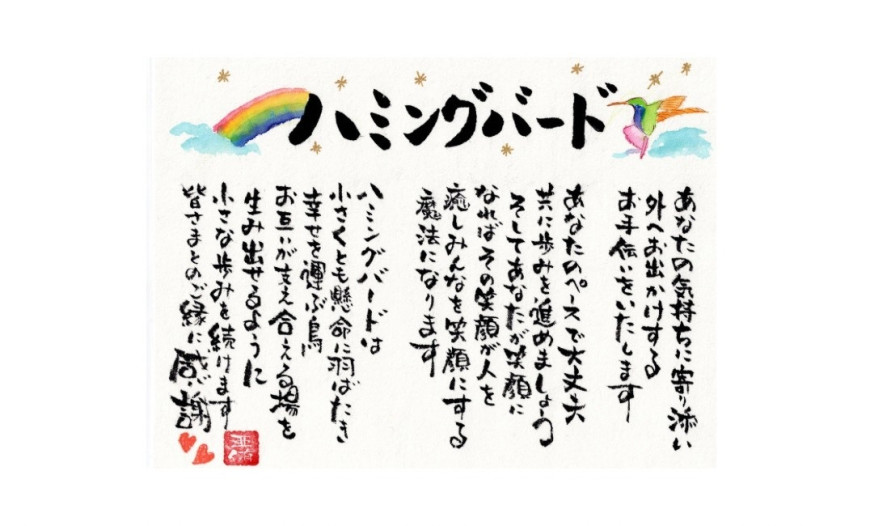 ハミングバード
あなたの気持ちに寄り添い
外へお出かけする
お手伝いをいたします
あなたのペースで大丈夫
共に歩みを進めましょう
そしてあなたが笑顔に
なればその笑顔が人を
癒しみんなを笑顔にする
魔法になります
ハミングバードは
小さくとも懸命に羽ばたき
幸せを運ぶ鳥
お互いが支え合える場を
生み出せるように
小さな歩みを続けます
皆さまとのご縁に感謝